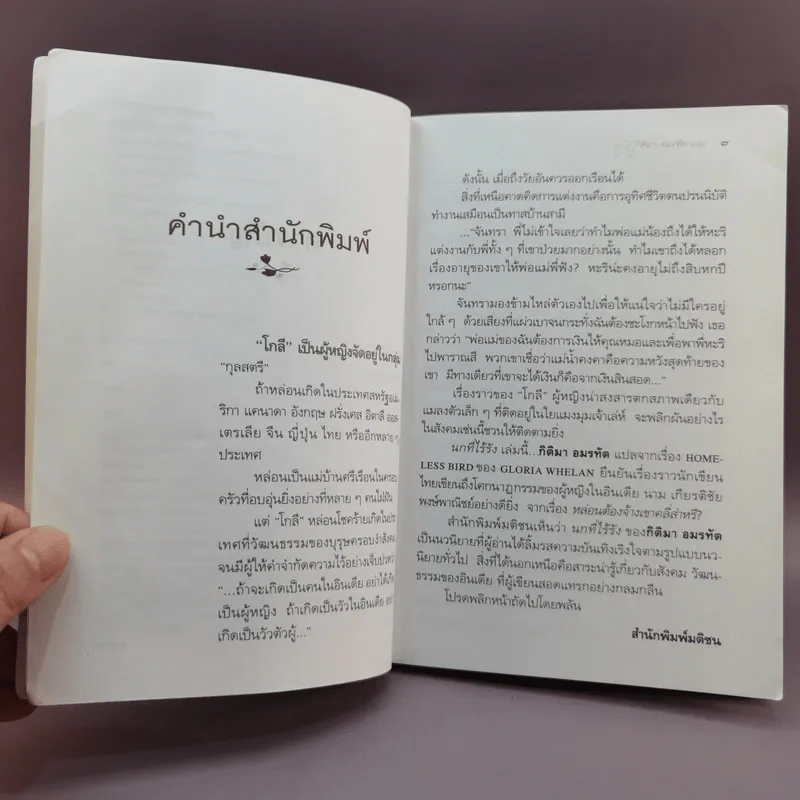 คำนำสำนักพิมพ์
“โกลี” เป็นผู้หญิงจัดอยู่ในกลุ่ม
“กุลสตรี”
ถ้าหล่อนเกิดในประเทศสหรัฐอเม-
ริกา แคนาดา อังกฤษ ฝรั่งเศส อิตาลี ออส-
เตรเลีย จีน ญี่ปุ่น ไทย หรืออีกหลาย ๆ
ประเทศ
หล่อนเป็นแม่บ้านศรีเรือนในครอบ
ครัวที่อบอุ่นยิ่งอย่างที่หลาย ๆ คนใฝ่ฝัน
แต่ “โกลี” หล่อนโชคร้ายเกิดในประ
เทศที่วัฒนธรรมของบุรุษครอบงำสังคม
จนมีผู้ให้คำจำกัดความไว้อย่างเจ็บปวดว่า
“...ถ้าจะเกิดเป็นคนในอินเดีย อย่าได้เกิด
เป็นผู้หญิง ถ้าเกิดเป็นวัวในอินเดีย
เกิดเป็นวัวตัวผู้...”
๗
ดังนั้น เมื่อถึงวัยอันควรออกเรือนได้
สิ่งที่เหนือคาดคิดการแต่งงานคือการอุทิศชีวิตตนปรนนิบัติ
ทำงานเสมือนเป็นทาสบ้านสามี
...“จันทรา พี่ไม่เข้าใจเลยว่าทำไมพ่อแม่น้องถึงได้ให้หะริ
แต่งงานกับพี่ทั้ง ๆ ที่เขาป่วยมากอย่างนั้น ทำไมเขาถึงได้หลอก
เรื่องอายุของเขาให้พ่อแม่พี่ฟัง? หะริน่ะคงอายุไม่ถึงสิบหกปี
หรอกนะ”
จันทรามองข้ามไหล่ตัวเองไปเพื่อให้แน่ใจว่าไม่มีใครอยู่
ใกล้ ๆ ด้วยเสียงที่แผ่วเบาจนกระทั่งฉันต้องชะโงกหน้าไปฟัง เธอ
กล่าวว่า “พ่อแม่ของฉันต้องการเงินให้คุณหมอและเพื่อพาพี่หะริ
ไปพาราณสี พวกเขาเชื่อว่าแม่น้ำคงคาคือความหวังสุดท้ายของ
เขา มีทางเดียวที่เขาจะได้เงินก็คือจากเงินสินสอด...”
เรื่องราวของ “โกลี” ผู้หญิงน่าสงสารตกสภาพเดียวกับ
แมลงตัวเล็ก ๆ ที่ติดอยู่ในใยแมงมุมเจ้าเล่ห์ จะพลิกผันอย่างไร
ในสังคมเช่นนี้ชวนให้ติดตามยิ่ง
นกที่ไร้รัง เล่มนี้...กิติมา อมรทัต แปลจากเรื่อง HOME-
LESS BIRD ของ GLORIA WHELAN ยืนยันเรื่องราวนักเขียน
ไทยเขียนถึงโศกนาฏกรรมของผู้หญิงในอินเดีย นาม เกียรติชัย
พงษ์พาณิชย์อย่างดียิ่ง จากเรื่อง หล่อนต้องจ้างเขาคลี่ส่าหรี?
สำนักพิมพ์มติชนเห็นว่า นกที่ไร้รัง ของกิติมา อมรทัต
เป็นนวนิยายที่ผู้อ่านได้ลิ้มรสความบันเทิงเริงใจตามรูปแบบนว-
นิยายทั่วไป สิ่งที่ได้นอกเหนือคือสาระน่ารู้เกี่ยวกับสังคม วัฒน-
ธรรมของอินเดีย ที่ผู้เขียนสอดแทรกอย่างกลมกลืน
โปรดพลิกหน้าถัดไปโดยพลัน
สำนักพิมพ์มติชน